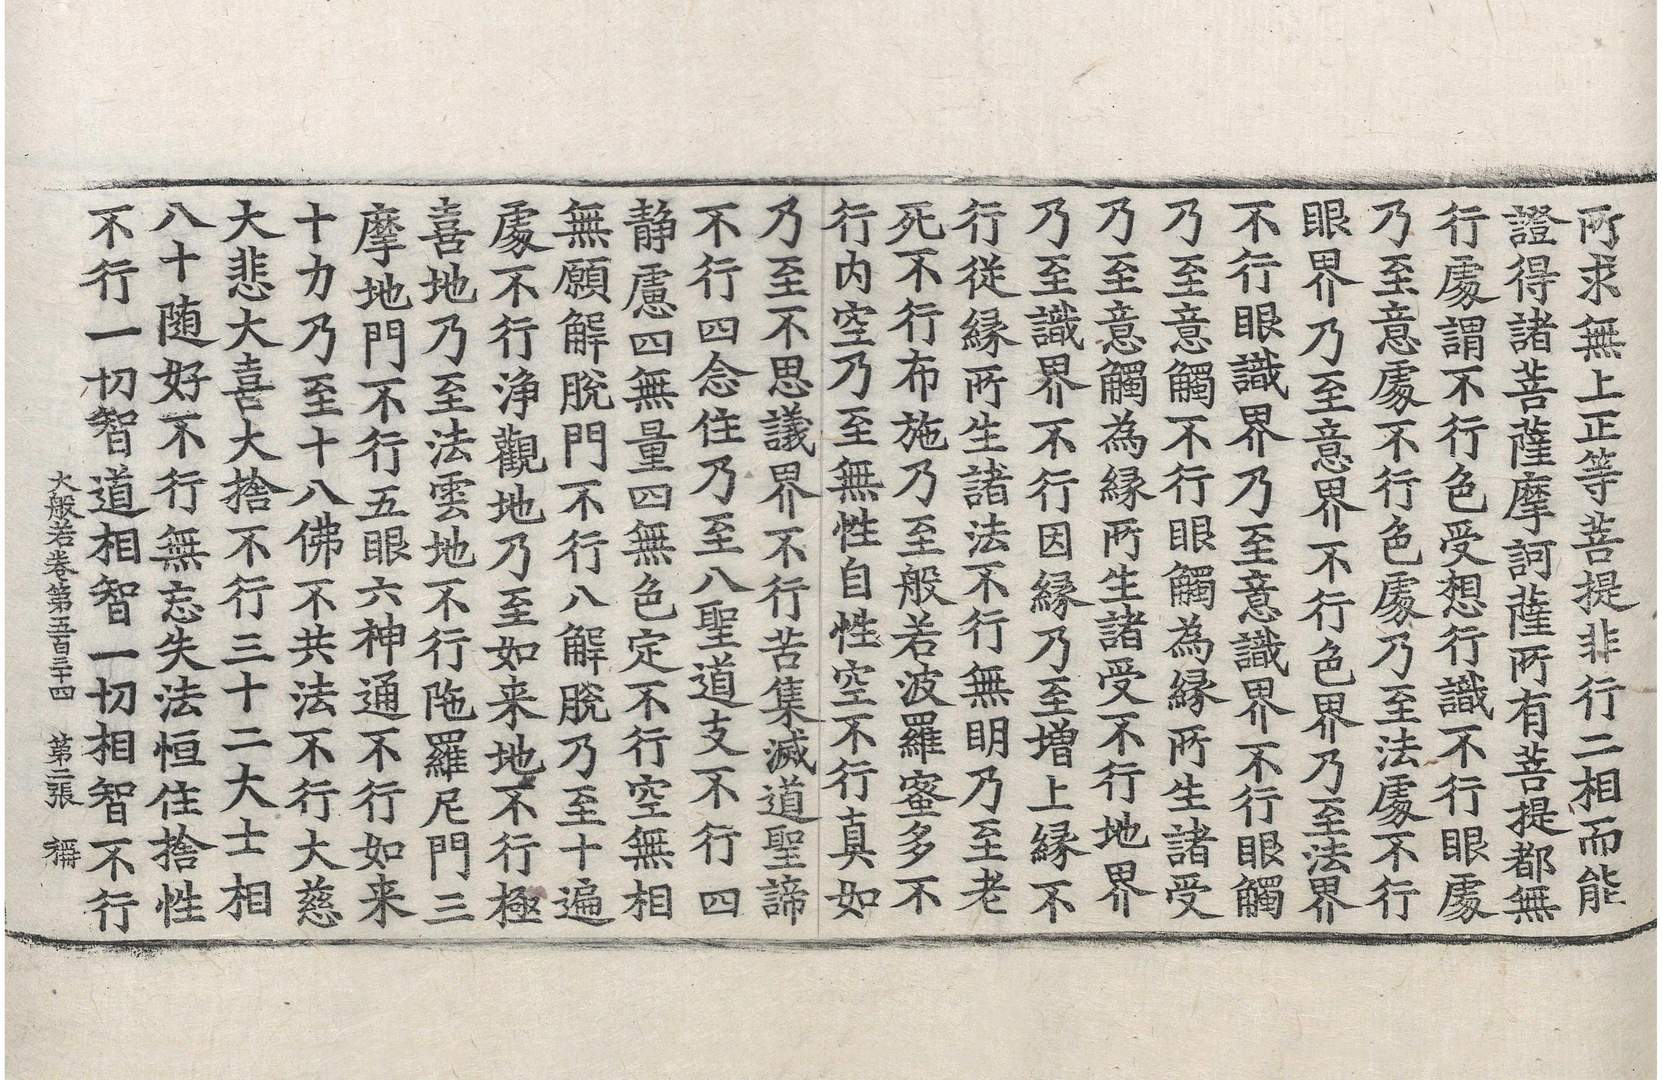 所求無上正等菩提非行二相而能
證得諸菩薩摩訶薩所有菩提都無
行處謂不行色受想行識不行眼處
乃至意處不行色處乃至法處不行
眼界乃至意界不行色界乃至法界
不行眼識界乃至意識界不行眼觸
乃至意觸不行眼觸為縁所生諸受
乃至意觸為縁所生諸受不行地界
乃至識界不行因縁乃至增上縁不
行從縁所生諸法不行無明乃至老
死不行布施乃至般若波羅蜜多不
行内空乃至無性自性空不行真如
乃至不思議界不行苦集滅道聖諦
不行四念住乃至八聖道支不行四
静慮四無量四無色定不行空無相
無願解脫門不行八解脫乃至十遍
處不行浄觀地乃至如来地不行極
喜地乃至法雲地不行陁羅尼門三
摩地門不行五眼六神通不行如来
十力乃至十八佛不共法不行大慈
大悲大喜大捨不行三十二大士相
八十随好不行無忘失法恒住捨性
不行一切智道相智一切相智不行
大般若卷第五百三十四　第二張　稱